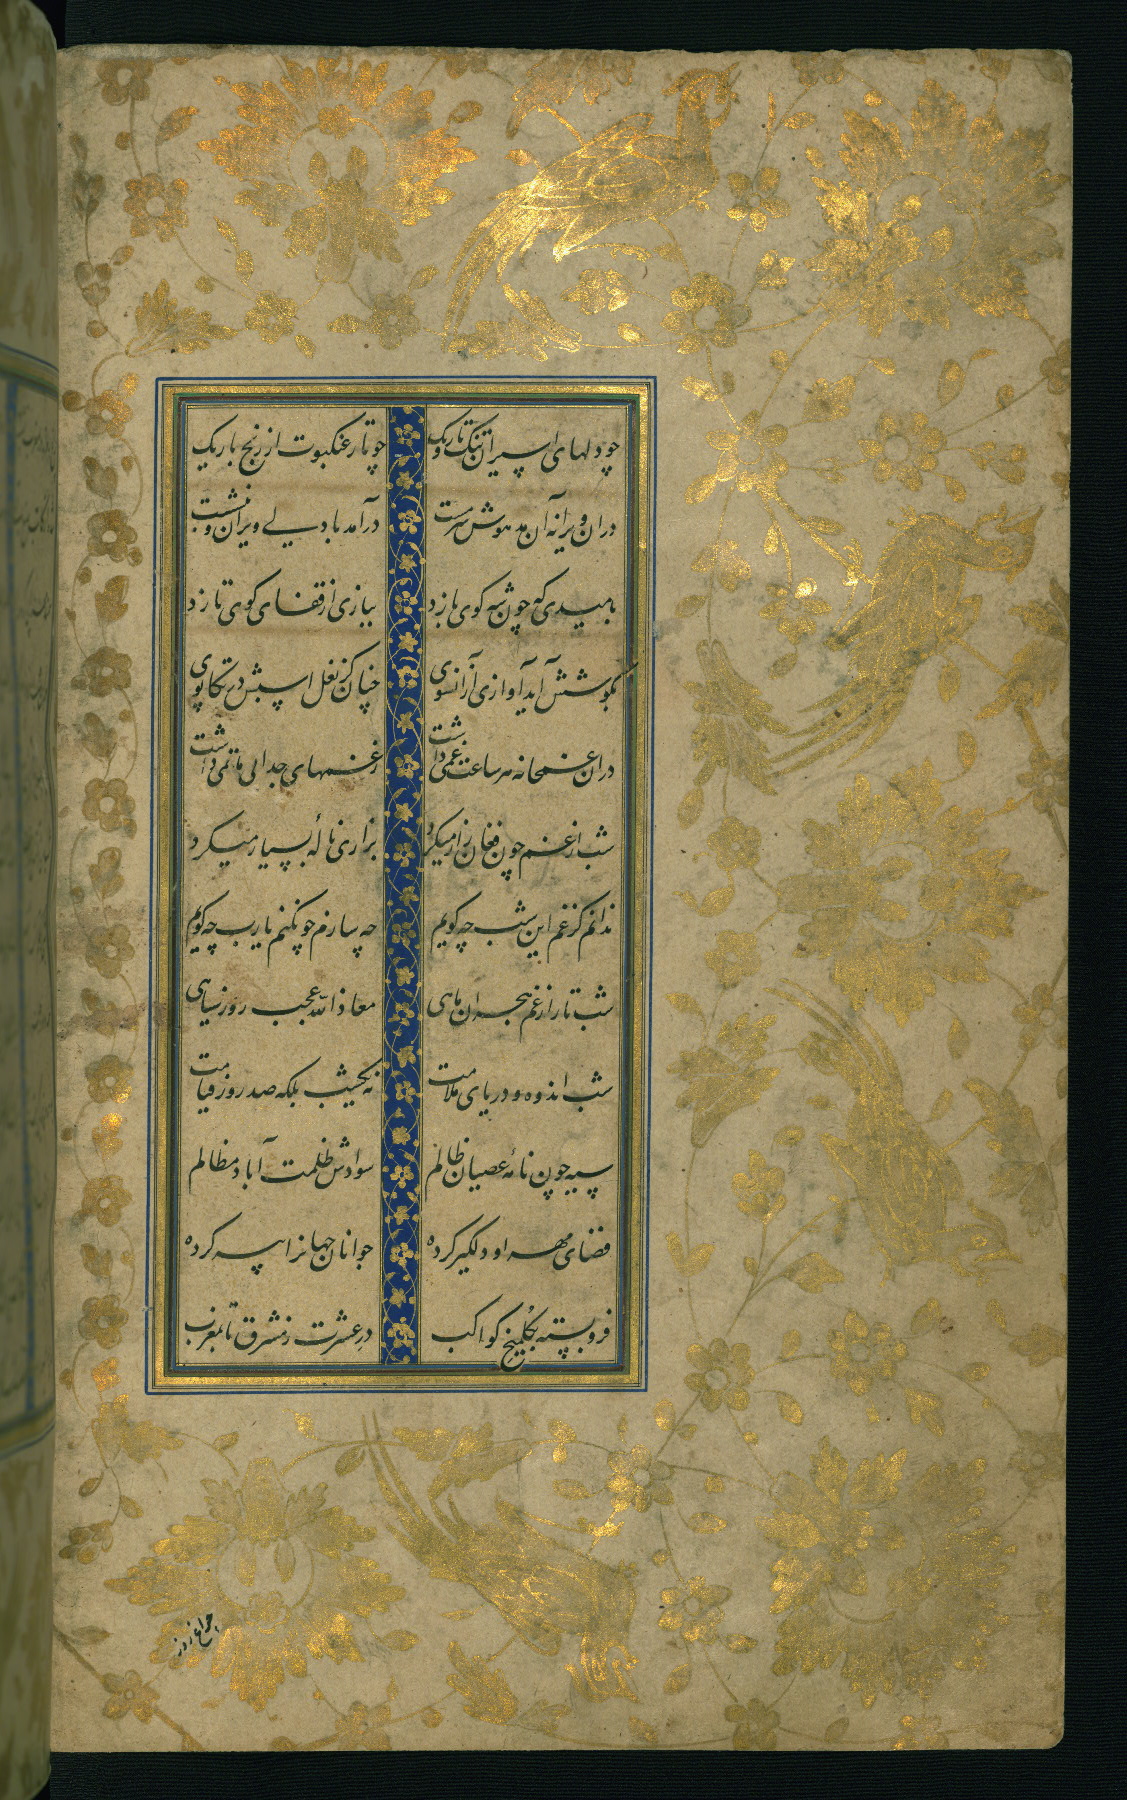 چو دلهای اسیران تنک و تاریک چو تار عنکبوت از رنج باریک
دران ویرانه آن مدهوش سرمست درآمد با دلی ویران و بنشست
بامیدی که چون شه کوی بازد ببازی از قفای کوی تازد
بکوشش آید آوازی از انسوی چنان کز نعل اسپش در تکاپوی
دران غمخانه هر ساعت غمی داشت ز غمهای جدائی ماتمی داشت
شب از غم چون فغان زار میکرد بزاری نالهٔ بسیار میکرد
ندانم کز غم این شب چه کویم چه سازم چو نکنم یارب چه کویم
شب تار از غم هجران ماهی معاذالله عجب روز سیاهی
شب اندوه و دریای ملامت نه یکشب بلکه صد روز قیامت
سیه چون نامهٔ عصیان ظالم سوادش ظلمت آباد مظالم
فضای مهـر او دلکیر کرده جوانان جهانرا پیر کرده
فروبسته بکلمیخ کواکب در عشرت ز مشرق تا بمغرب
چراغ روز